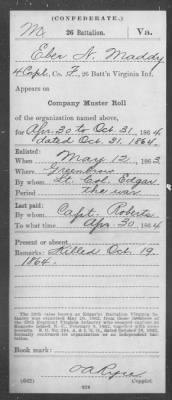 (CONFEDERATE.)
M 26 Battalion. Va.
Eber N. Maddy
4 Corpl, Co. F, 26 Batt'n Virginia Inf.
Appears on
Company Muster Roll
of the organization named above,
for Apr. 30 to Oct. 31, 1864.
dated Oct. 31, 1864.
Enlisted:
When May 12, 1863.
Where Greenbrier
By whom Lt. Col. Edgar
Period the war
Last paid:
By whom Capt. Roberts
To what time Apr. 30, 1864
Present or absent
Remarks: Killed Oct. 19
1864.
Book mark:
(642) Copyist.